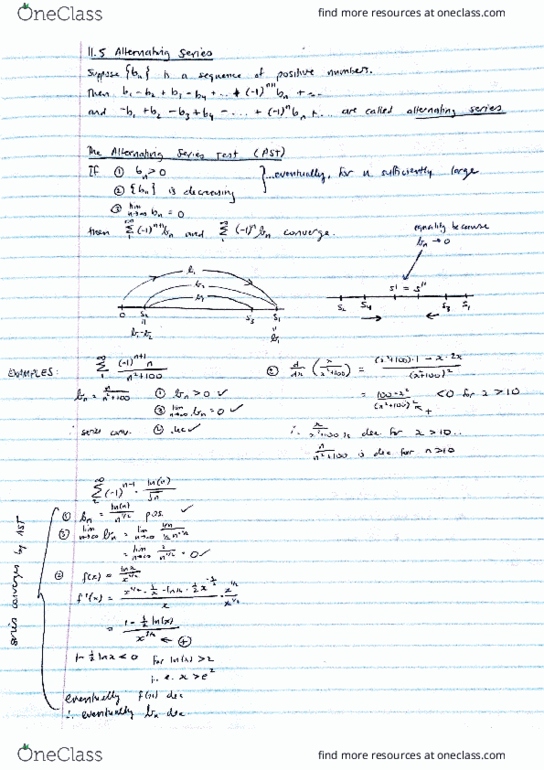 OneClass
find more resources at oneclass.com
11.5 Alternating Series
Suppose {bn} is a sequence of positive numbers.
Then b1 - b2 + b3 - b4 + ... + (-1)^(n+1) bn + ...
and -b1 + b2 - b3 + b4 - ... + (-1)^n bn + ... are called alternating series
The Alternating Series Test (AST)
If ① bn > 0
② {bn} is decreasing
③ lim n→∞ bn = 0
}...eventually, for n sufficiently large
then ∞Σ1 (-1)^(n+1) bn and ∞Σ1 (-1)^n bn converge.
equality because
bn → 0
b1
b2
b3
0 S2 S3 S1
b1-b2
b1
S' = S''
S2 S4 S3 S1
EXAMPLES: ∞Σ1 (-1)^(n+1) n / (n²+100)
bn = n/(n²+100) ① bn > 0 ✓
③ lim n→∞ bn = 0 ✓
∴ series conv. ②
② d/dx (x/(x²+100)) = ((x²+100)·1 - x·2x)/(x²+100)²
= (100-x²)/(x²+100)² < 0 for x > 10
+
∴ x/(x²+100) is dec for x > 10..
n/(n²+100) is dec for n > 10
∞Σ2 (-1)^(n-1) · ln(n)/√n
① bn = ln(n)/n^(1/2) pos. ✓
③ lim n→∞ bn = lim n→∞ (1/n)/(1/2 n^(-1/2))
= lim n→∞ 2/n^(1/2) = 0 ✓
② f(x) = ln x/x^(1/2)
f'(x) = (x^(1/2) · 1/x - ln x · 1/2 x^(-1/2))/x · x^(1/2)/x^(1/2)
= (1 - 1/2 ln(x))/x^(3/2) ← ⊕
1 - 1/2 ln x < 0 for ln(x) > 2
i.e. x > e²
eventually f(x) dec
∴ eventually bn dec
series converges by AST
OneClass
find more resources at oneclass.com